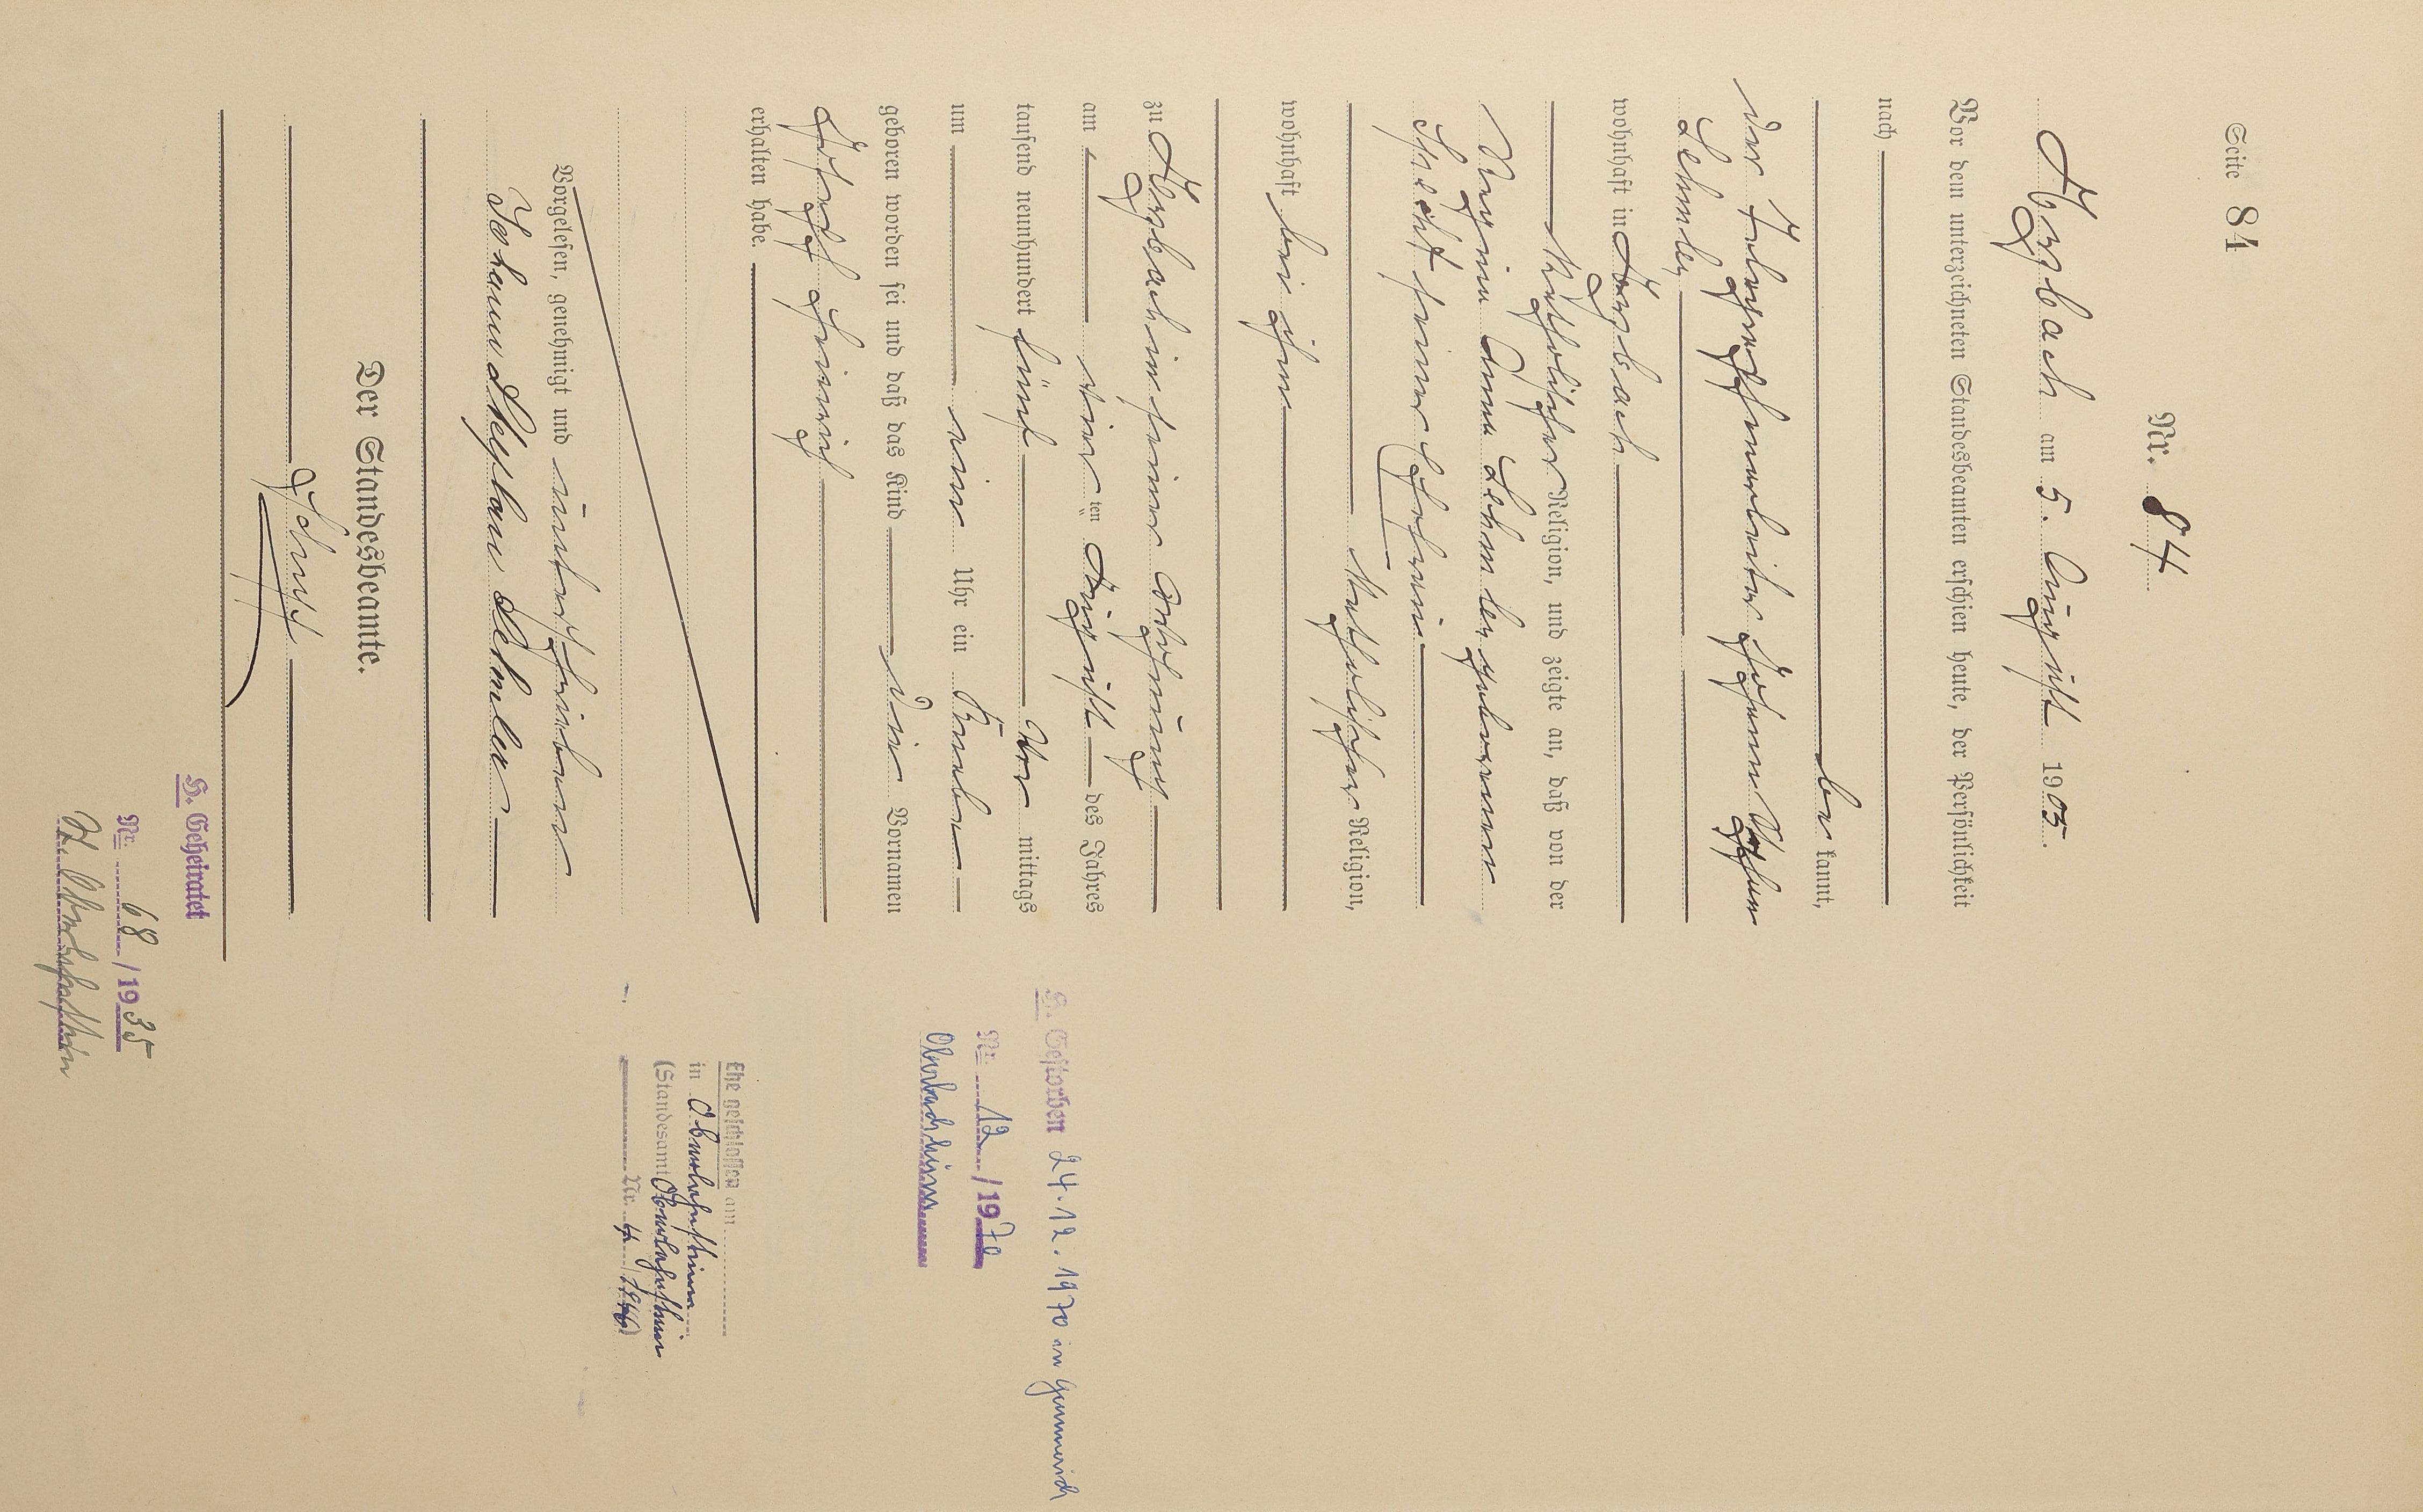 Seite 84
Nr. 84
am 5. August 1905.
Vor dem unterzeichneten Standesbeamten erschien heute, der Persönlichkeit
nach
be kannt,
der Johann Stephan
Lehmler
wohnhaft in
katholischer Religion, und zeigte an, daß von der
Anna Lehmler geborenen
Specht seiner Ehefrau
katholischer Religion,
wohnhaft bei ihm
zu in seiner Wohnung
am vier ten August des Jahres
tausend neunhundert fünf Vor mittags
um ein Uhr ein Knabe
geboren worden sei und daß das Kind den Vornamen
Joseph Heinrich
erhalten habe.
Vorgelesen, genehmigt und unterschrieben
Johann Stephan Lehmler
Der Standesbeamte.
H. Geheiratet
Nr. 68/1935
St.
H. Gestorben 24.12.1970 in
Nr. 12/1970
Ehe geschlossen am
in Oberlahnstein
(Standesamt Oberlahnstein
Nr. 4/1946)